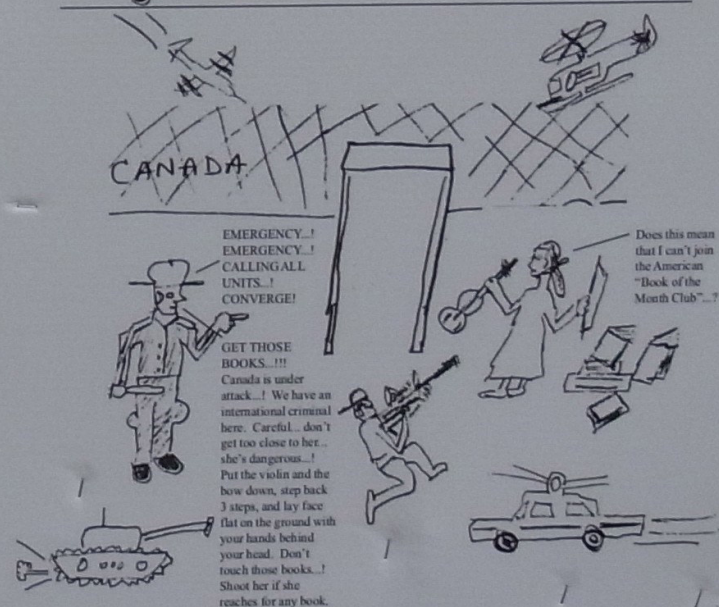 CANADA
EMERGENCY...!
EMERGENCY...!
CALLING ALL
UNITS...!
CONVERGE!
GET THOSE
BOOKS...!!!
Canada is under
attack...! We have an
international criminal
here. Careful... don't
get too close to her...
she's dangerous...!
Put the violin and the
bow down, step back
3 steps, and lay face
flat on the ground with
your hands behind
your head. Don't
touch those books...!
Shoot her if she
reaches for any book.
Does this mean
that I can't join
the American
"Book of the
Month Club"...?